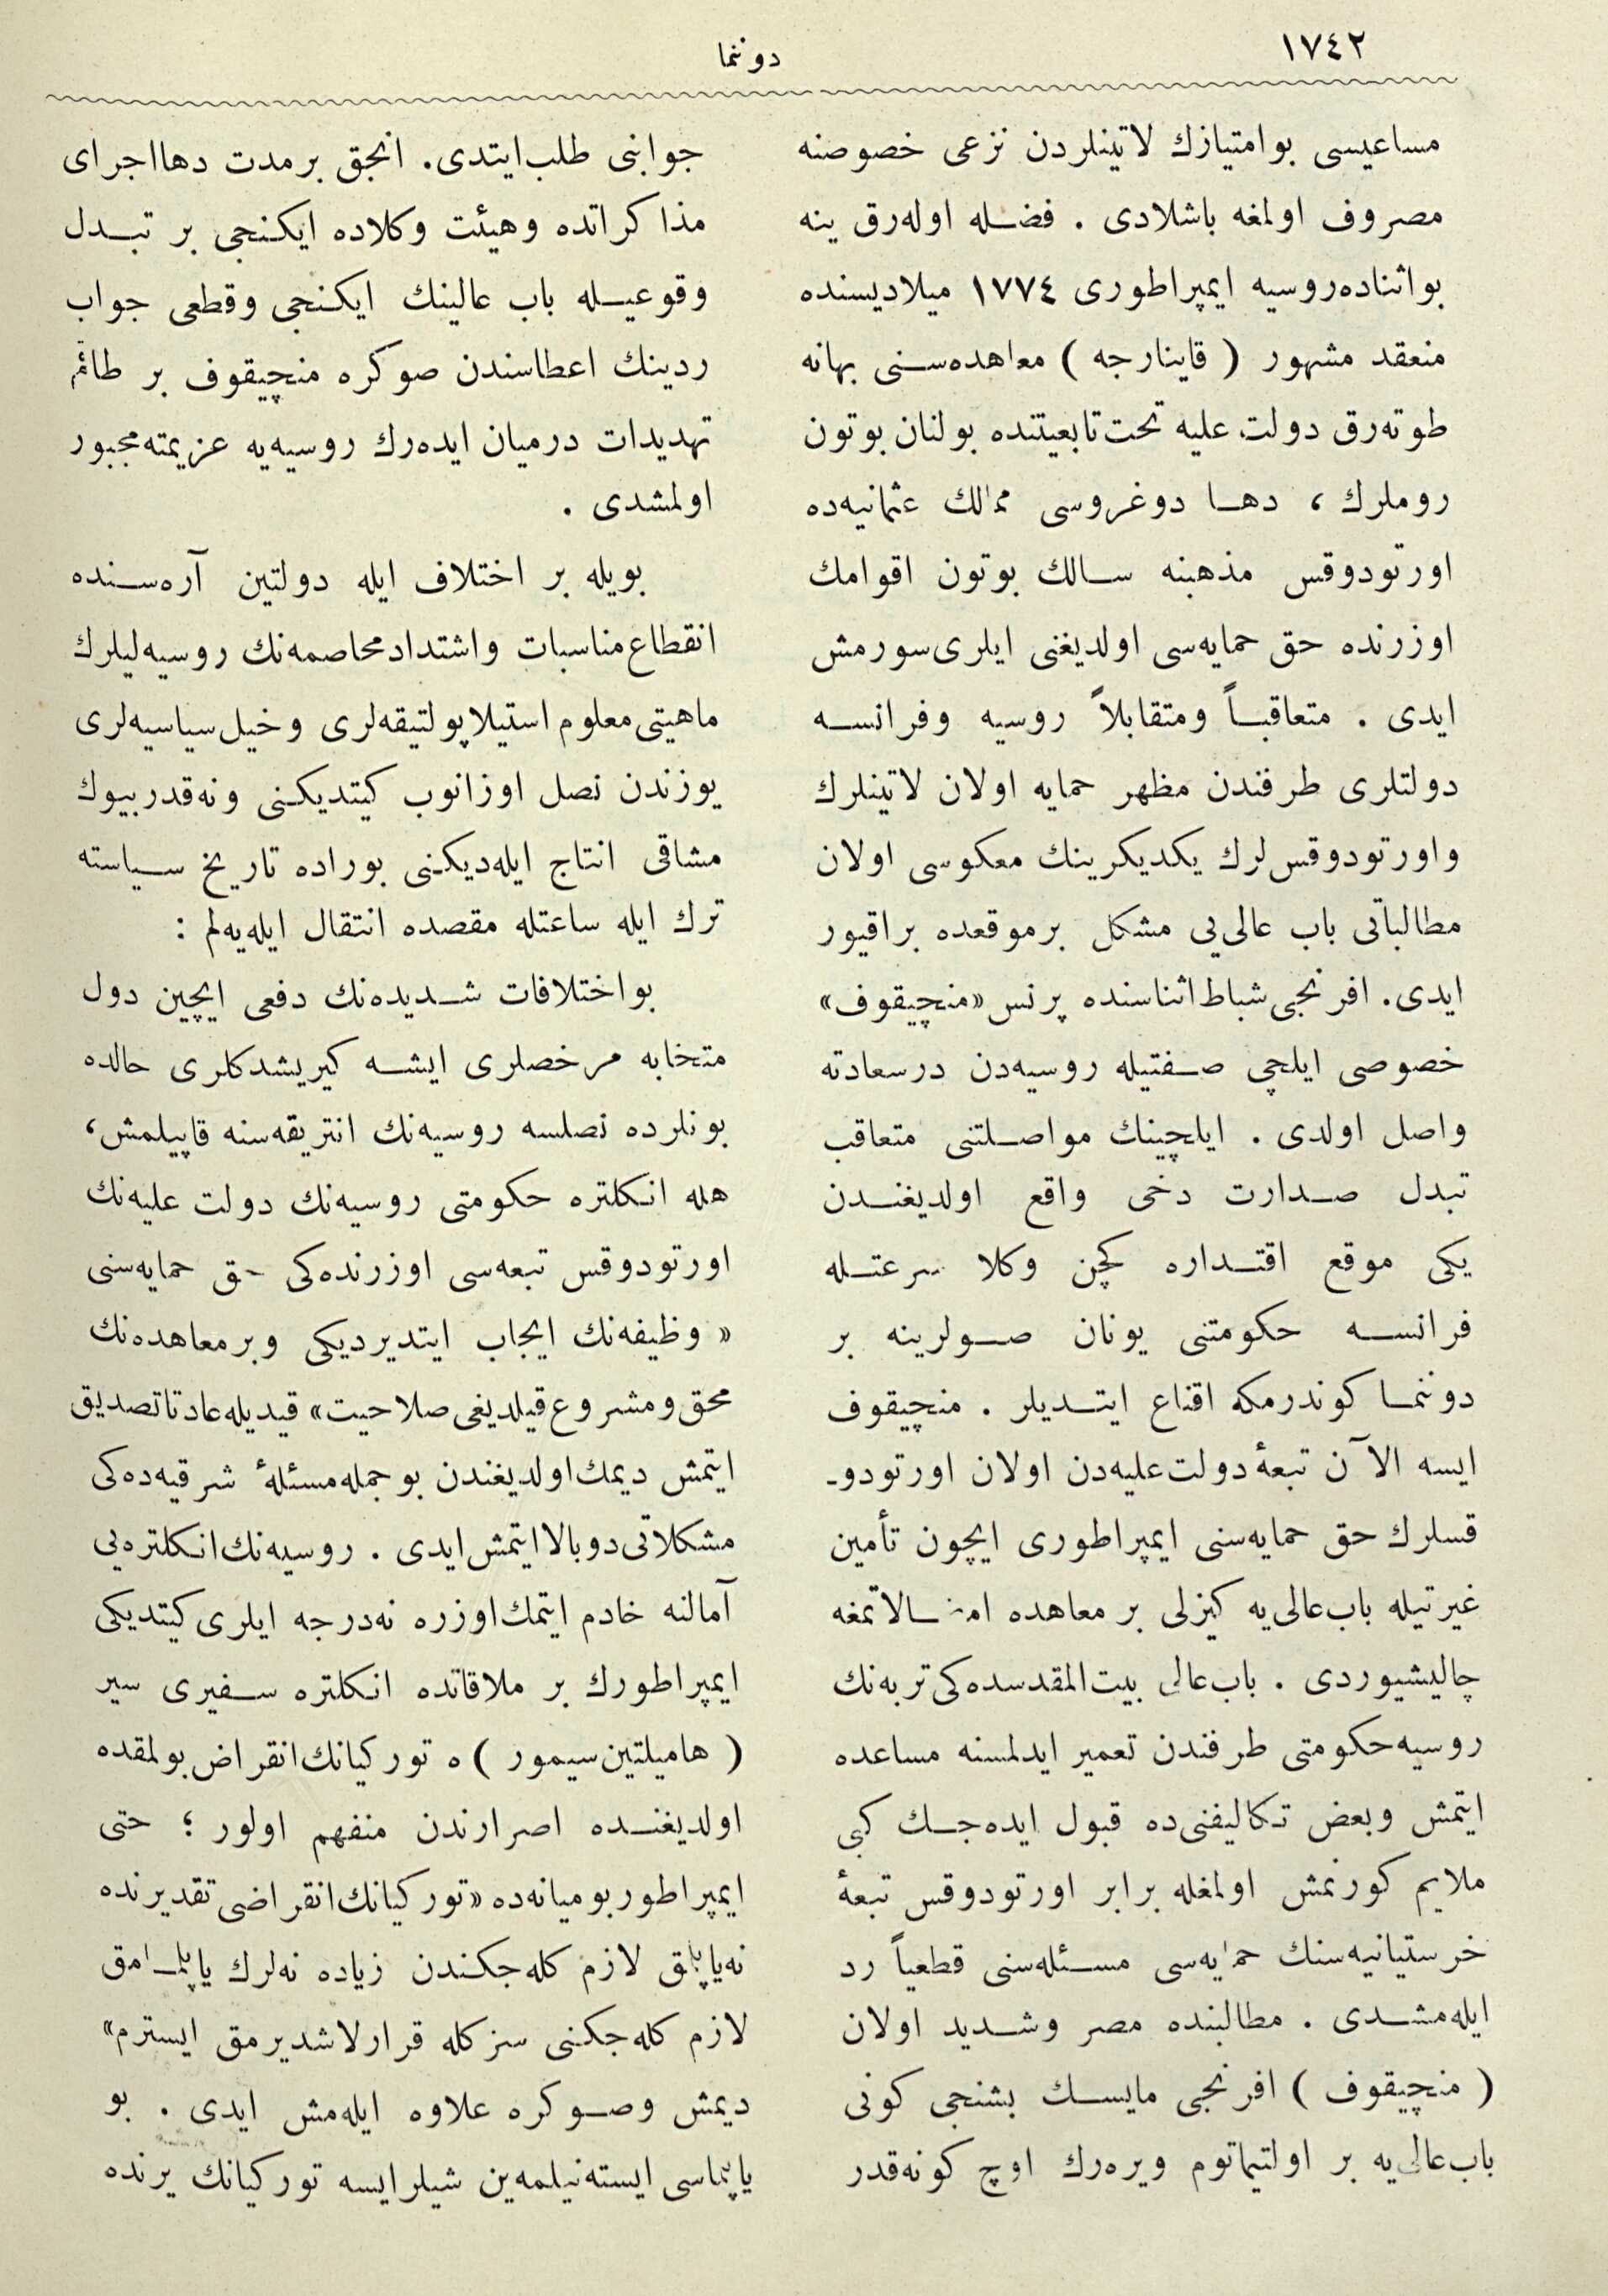 ١٧٤٢
دوننما
مساعیسی بوامتیازك لاتینلردن نزعی خصوصنه
مصروف اولمغه باشلادی . فضله اوله‌رق ینه
بواثناده‌روسیه ایمپراطوری ١٧٧٤ میلادیسنده
منعقد مشهور ( قاینارجه ) معاهده‌سنی بهانه
طوته‌رق دولت علیه تحت تابعیتنده بولنان بوتون
روملرك ، دها دوغروسی ممالك عثمانیه‌ده
اورتودوقس مذهبنه سالك بوتون اقوامك
اوزرنده حق حمایه‌سی اولدیغنی ایلری سورمش
ایدی . متعاقباً ومتقابلاً روسیه وفرانسه
دولتلری طرفندن مظهر حمایه اولان لاتینلرك
واورتودوقس‌لرك یکدیکرینك معکوسی اولان
مطالباتی باب عالی‌یی مشکل برموقعده براقیور
ایدی . افرنجی شباط اثناسنده پرنس «منچیقوف»
خصوصی ایلچی صفتیله روسیه‌دن درسعادته
واصل اولدی . ایلچینك مواصلتنی متعاقب
تبدل صدارت دخی واقع اولدیغندن
یکی موقع اقتداره کچن وکلا سرعتله
فرانسه حکومتنی یونان صولرینه بر
دوننما کوندرمکه اقناع ایتدیلر . منچیقوف
ایسه الآن تبعهٔ دولت علیه‌دن اولان اورتودو-
قسلرك حق حمایه‌سنی ایمپراطوری ایچون تأمین
غیرتیله باب‌عالی‌یه کیزلی بر معاهده امضالاتمغه
چالیشیوردی . باب‌عالی بیت المقدسده‌کی تربه‌نك
روسیه حکومتی طرفندن تعمیر ایدلمسنه مساعده
ایتمش وبعض تکالیفنی‌ده قبول ایده‌جك کبی
ملایم کورنمش اولمغله برابر اورتودوقس تبعهٔ
خرستیانیه‌سنك حمایه‌سی مسئله‌سنی قطعیاً رد
ایله‌مشدی . مطالبنده مصر وشدید اولان
( منچیقوف ) افرنجی مایسك بشنجی کونی
باب‌عالی‌یه بر اولتیماتوم ویره‌رك اوچ کونه‌قدر
جوابنی طلب‌ایتدی . انجق برمدت دها اجرای
مذاکراتده وهیئت وکلاده ایکنجی بر تبدل
وقوعیله باب عالینك ایکنجی وقطعی جواب
ردینك اعطاسندن صوکره منچیقوف بر طاقم
تهدیدات درمیان ایده‌رك روسیه‌یه عزیمته مجبور
اولمشدی .
بویله بر اختلاف ایله دولتین آره‌سنده
انقطاع مناسبات واشتداد مخاصمه‌نك روسیه‌لیلرك
ماهیتی معلوم استیلا پولتیقه‌لری وخیل سیاسیه‌لری
یوزندن نصل اوزانوب کیتدیکنی ونه‌قدر بیوك
مشاقی انتاج ایله‌دیکنی بوراده تاریخ سیاسته
ترك ایله ساعتله مقصده انتقال ایله‌یه‌لم :
بواختلافات شدیده‌نك دفعی ایچین دول
متخابه مرخصلری ایشه کیریشدکلری حالده
بونلرده نصلسه روسیه‌نك انتریقه‌سنه قاپیلمش،
هله انکلتره حکومتی روسیه‌نك دولت علیه‌نك
اورتودوقس تبعه‌سی اوزرنده‌کی حق حمایه‌سنی
« وظیفه‌نك ایجاب ایتدیردیکی وبرمعاهده‌نك
محق ومشروع قیلدیغی صلاحیت» قیدیله عادتا تصدیق
ایتمش دیمك اولدیغندن بوجمله مسئلهٔ شرقیه‌ده‌کی
مشکلاتی دوبالا ایتمش ایدی . روسیه‌نك انکلتره‌یی
آمالنه خادم ایتمك اوزره نه‌درجه ایلری کیتدیکی
ایمپراطورك بر ملاقاتده انکلتره سفیری سیر
( هامیلتین سیمور )ه تورکیانك انقراض بولمقده
اولدیغنده اصرارندن منفهم اولور ؛ حتی
ایمپراطور بومیانه‌ده «تورکیانك انقراضی تقدیرنده
نه‌یاپلق لازم کله‌جکندن زیاده نه‌لرك یاپلمامق
لازم کله‌جکنی سزکله قرارلاشدیرمق ایسترم»
دیمش وصوکره علاوه ایله‌مش ایدی . بو
یاپلماسی ایسته‌نیلمه‌ین شیلر ایسه تورکیانك یرنده